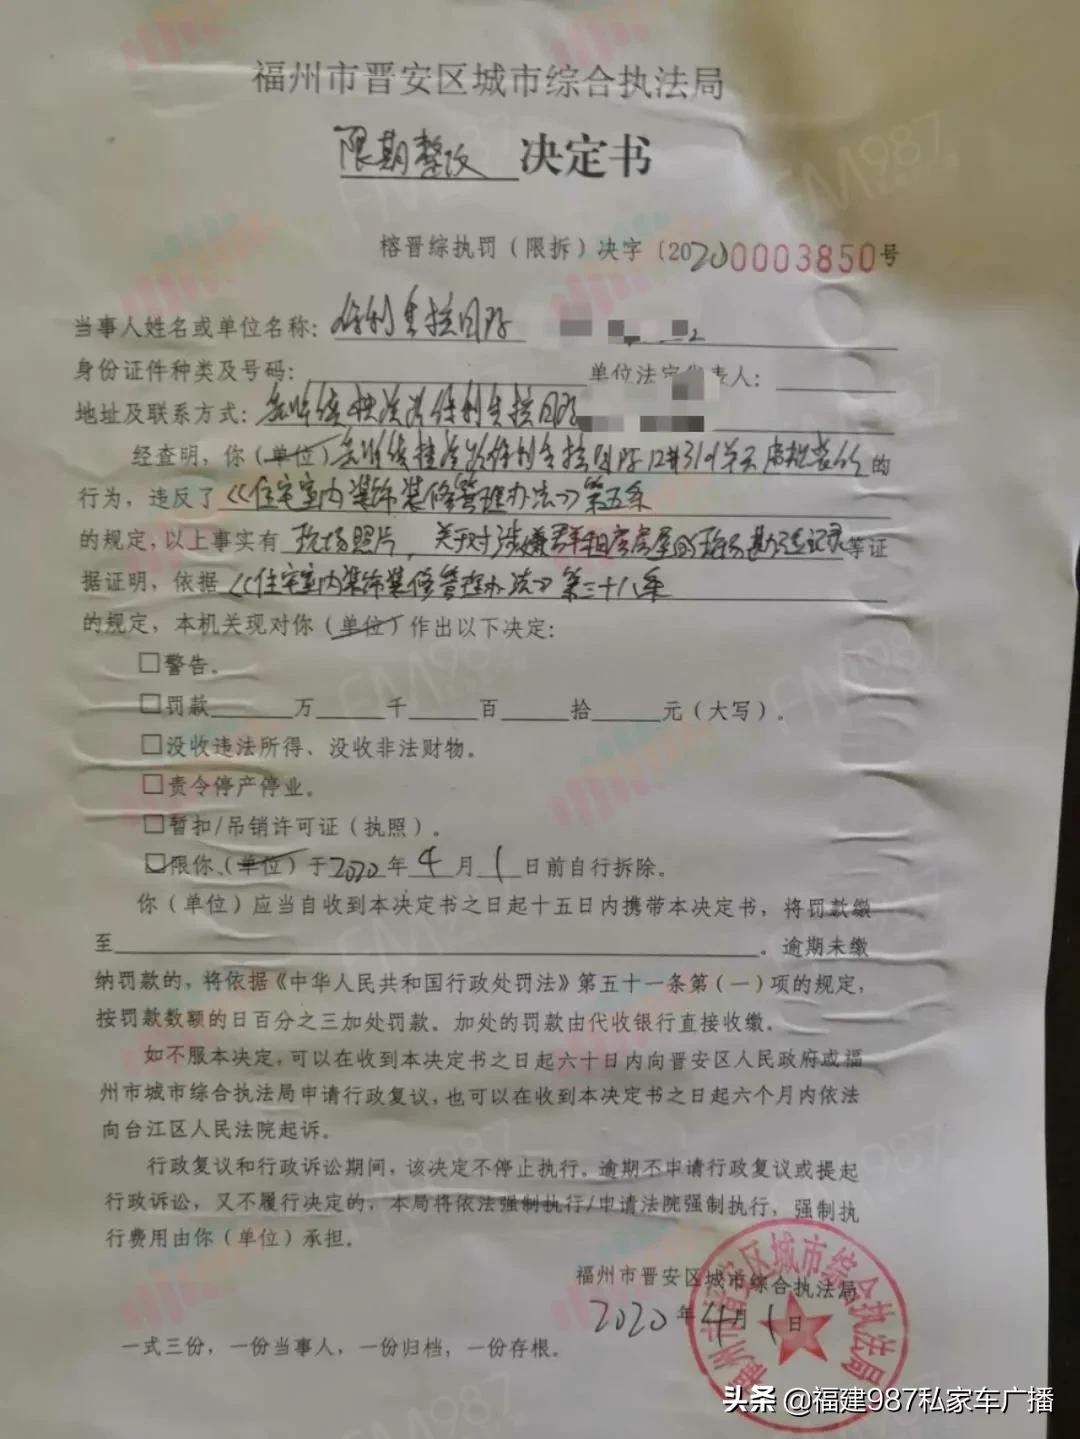 福州市晋安区城市综合执法局
限期整改 决定书
榕晋综执罚（限拆）决字〔20200003850号
当事人姓名或单位名称：保利香槟国际
身份证件种类及号码： 单位法定代表人：
地址及联系方式：保利香槟国际
经查明，你（单位）保利香槟国际12#3101单元 的
行为，违反了《住宅室内装饰装修管理办法》第五条
的规定，以上事实有 现场照片，关于对涉嫌群租房房屋的现场勘验记录等证
据证明，依据《住宅室内装饰装修管理办法》第三十八条
的规定，本机关现对你（单位）作出以下决定：
□警告。
□罚款 万 千 百 拾 元（大写）。
□没收违法所得、没收非法财物。
□责令停产停业。
□暂扣/吊销许可证（执照）。
☑限你（单位）于2020年4月1日前自行拆除。
你（单位）应当自收到本决定书之日起十五日内携带本决定书，将罚款缴
至 。逾期未缴
纳罚款的，将依据《中华人民共和国行政处罚法》第五十一条第（一）项的规定，
按罚款数额的日百分之三加处罚款。加处的罚款由代收银行直接收缴。
如不服本决定，可以在收到本决定书之日起六十日内向晋安区人民政府或福
州市城市综合执法局申请行政复议，也可以在收到本决定书之日起六个月内依法
向台江区人民法院起诉。
行政复议和行政诉讼期间，该决定不停止执行。逾期不申请行政复议或提起
行政诉讼，又不履行决定的，本局将依法强制执行/申请法院强制执行，强制执
行费用由你（单位）承担。
福州市晋安区城市综合执法局
2020年4月1日
福州市晋安区城市综合执法局
一式三份，一份当事人，一份归档，一份存根。
FM987
头条 @福建987私家车广播